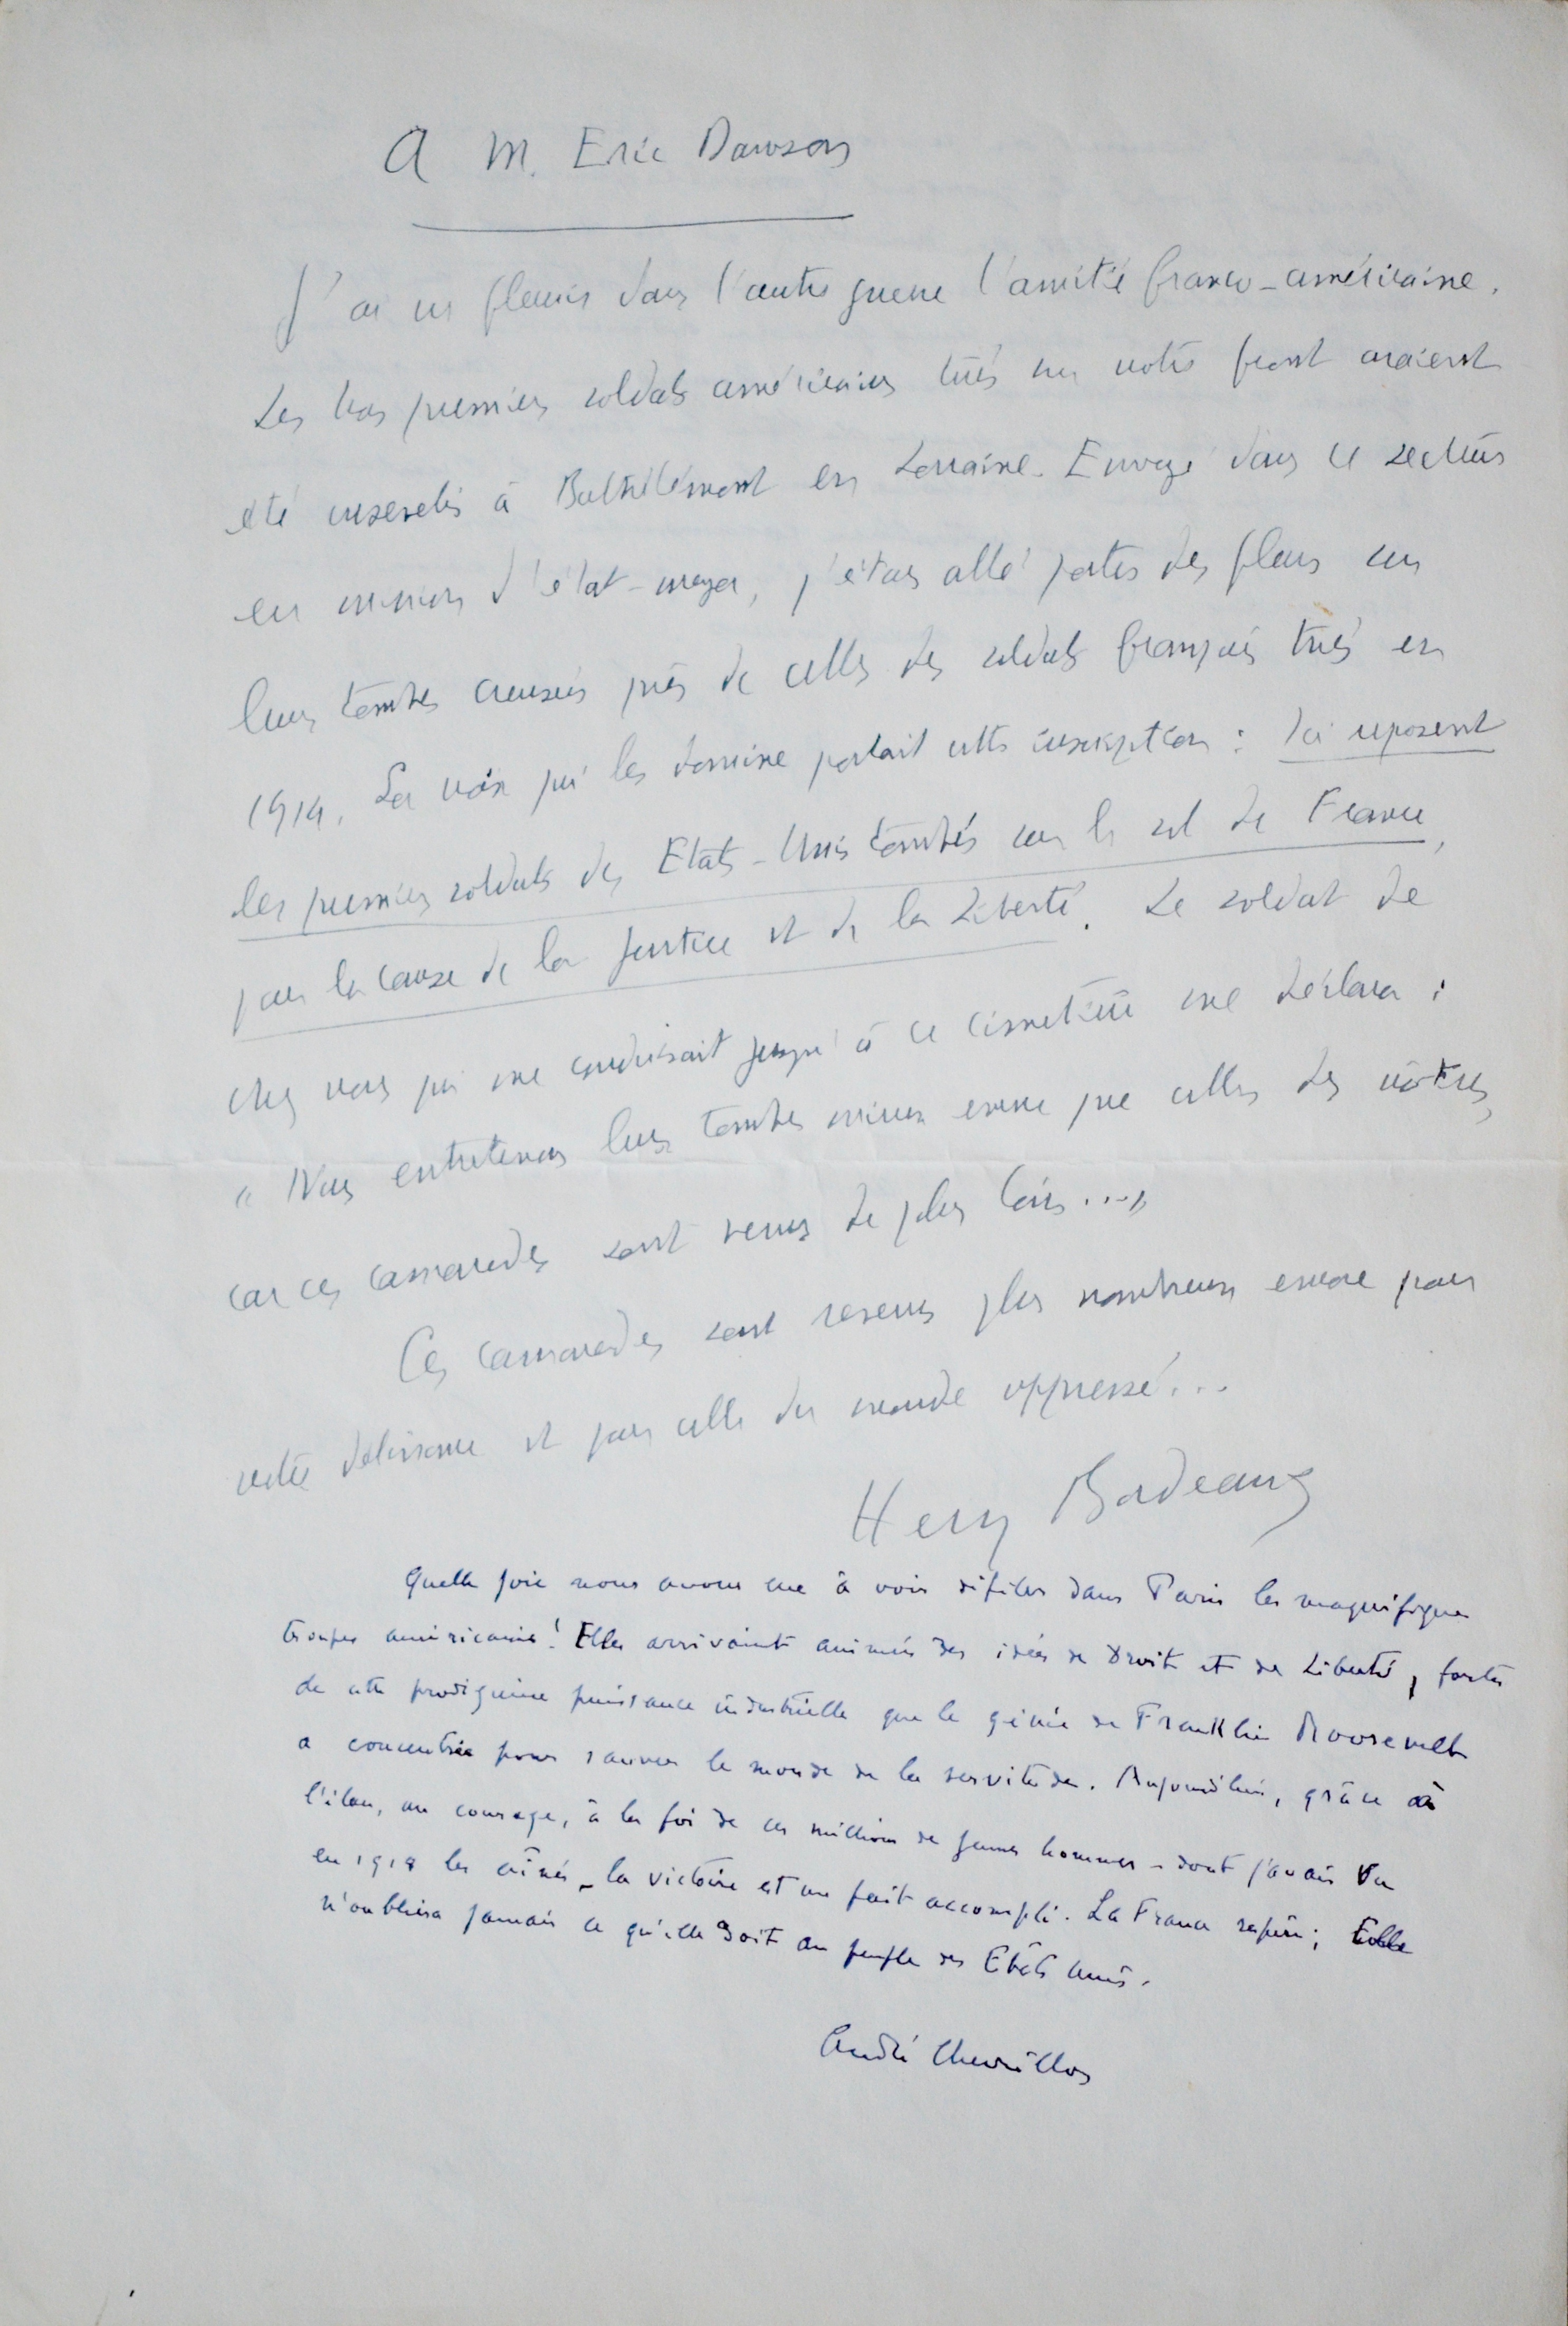 A M. Eric Dawson
J'ai vu fleurir dans l'autre guerre l'amitié franco-américaine.
Les trois premiers soldats américains tués sur notre front avaient
été ensevelis à Bathélémont en Lorraine. Envoyé dans ce secteur
en mission d'état-major, j'étais allé porter des fleurs sur
leurs tombes creusées près de celles des soldats français tués en
1914. La croix qui les domine portait cette inscription : Ici reposent
les premiers soldats des Etats-Unis tombés sur le sol de France,
pour la cause de la Justice et de la Liberté. Le soldat de
chez nous qui me conduisait jusqu'à ce cimetière me déclara :
« Nous entretenons leurs tombes mieux encore que celles des nôtres,
car ces camarades sont venus de plus loin... »
Ces camarades sont revenus plus nombreux encore pour
notre délivrance et pour celle du monde oppressé...
Henry Bordeaux
Quelle joie nous avons eue à voir défiler dans Paris les magnifiques
troupes américaines ! Elles arrivaient animées des idées de Droit et de Liberté, fortes
de cette prodigieuse puissance industrielle que le génie de Franklin Roosevelt
a concentrée pour sauver le monde de la servitude. Aujourd'hui, grâce à
l'élan, au courage, à la foi de ces millions de jeunes hommes - dont j'avais vu
en 1918 les aînés - la victoire est un fait accompli. La France respire ; Elle
n'oubliera jamais ce qu'elle doit au peuple des Etats Unis.
André Chevrillon